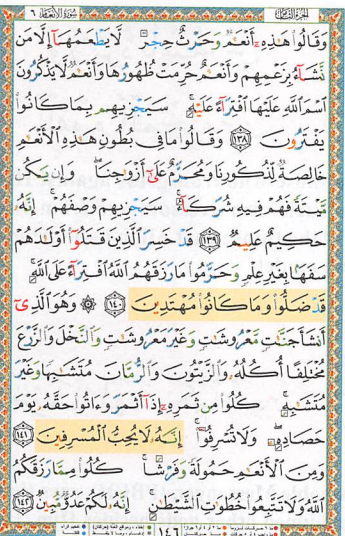 الجزء الثامن
سورة الأنعام ٦
وَقَالُوا۟ هَٰذِهِۦٓ أَنْعَٰمٌ وَحَرْثٌ حِجْرٌ لَّا يَطْعَمُهَآ إِلَّا مَن
نَّشَآءُ بِزَعْمِهِمْ وَأَنْعَٰمٌ حُرِّمَتْ ظُهُورُهَا وَأَنْعَٰمٌ لَّا يَذْكُرُونَ
ٱسْمَ ٱللَّهِ عَلَيْهَا ٱفْتِرَآءً عَلَيْهِ ۚ سَيَجْزِيهِم بِمَا كَانُوا۟
يَفْتَرُونَ ﴿١٣٨﴾ وَقَالُوا۟ مَا فِى بُطُونِ هَٰذِهِ ٱلْأَنْعَٰمِ
خَالِصَةٌ لِّذُكُورِنَا وَمُحَرَّمٌ عَلَىٰٓ أَزْوَٰجِنَا ۖ وَإِن يَكُن
مَّيْتَةً فَهُمْ فِيهِ شُرَكَآءُ ۚ سَيَجْزِيهِمْ وَصْفَهُمْ ۚ إِنَّهُۥ
حَكِيمٌ عَلِيمٌ ﴿١٣٩﴾ قَدْ خَسِرَ ٱلَّذِينَ قَتَلُوٓا۟ أَوْلَٰدَهُمْ
سَفَهًۢا بِغَيْرِ عِلْمٍ وَحَرَّمُوا۟ مَا رَزَقَهُمُ ٱللَّهُ ٱفْتِرَآءً عَلَى ٱللَّهِ ۚ
قَدْ ضَلُّوا۟ وَمَا كَانُوا۟ مُهْتَدِينَ ﴿١٤٠﴾ ۞ وَهُوَ ٱلَّذِىٓ
أَنشَأَ جَنَّٰتٍ مَّعْرُوشَٰتٍ وَغَيْرَ مَعْرُوشَٰتٍ وَٱلنَّخْلَ وَٱلزَّرْعَ
مُخْتَلِفًا أُكُلُهُۥ وَٱلزَّيْتُونَ وَٱلرُّمَّانَ مُتَشَٰبِهًا وَغَيْرَ
مُتَشَٰبِهٍ ۚ كُلُوا۟ مِن ثَمَرِهِۦٓ إِذَآ أَثْمَرَ وَءَاتُوا۟ حَقَّهُۥ يَوْمَ
حَصَادِهِۦ ۖ وَلَا تُسْرِفُوٓا۟ ۚ إِنَّهُۥ لَا يُحِبُّ ٱلْمُسْرِفِينَ ﴿١٤١﴾
وَمِنَ ٱلْأَنْعَٰمِ حَمُولَةً وَفَرْشًا ۚ كُلُوا۟ مِمَّا رَزَقَكُمُ
ٱللَّهُ وَلَا تَتَّبِعُوا۟ خُطُوَٰتِ ٱلشَّيْطَٰنِ ۚ إِنَّهُۥ لَكُمْ عَدُوٌّ مُّبِينٌ ﴿١٤٢﴾
١٤٦